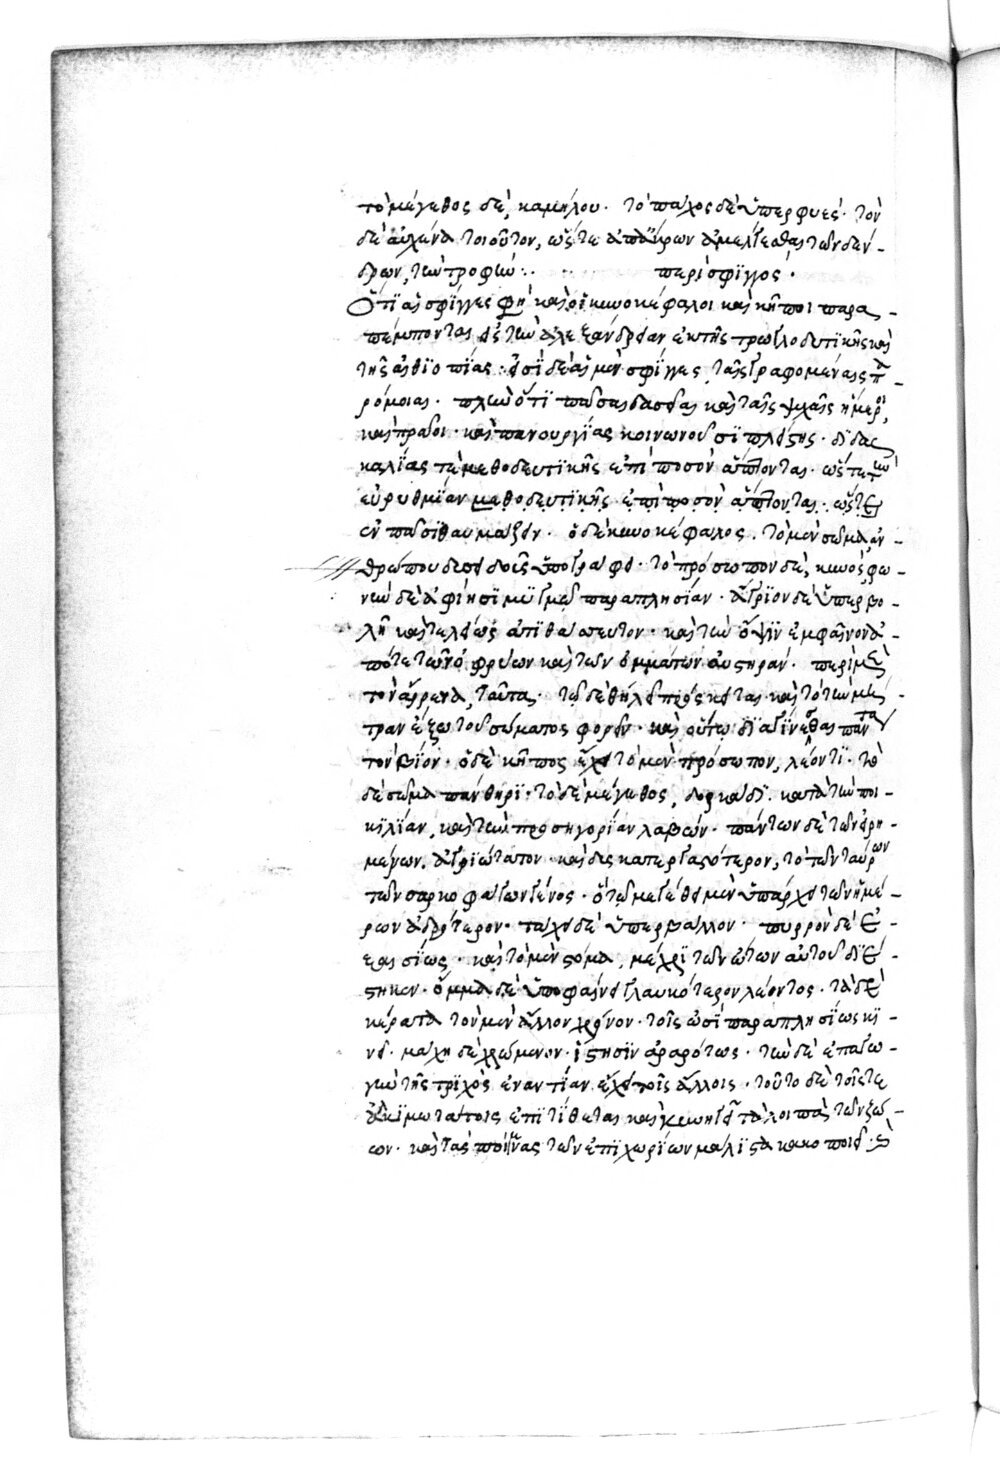 τὸ μέγεθος δὲ, καμήλου· τὸ πάχος δὲ ὑπερφυές· τὸν
δὲ αὐχένα τοιοῦτον, ὥστε ἀπ' ἄκρων ἀμέλγεσθαι τῶν δέν-
δρων, τὴν τροφήν:· περὶ σφϊγγός·
Ὅτϊ αἱ σφίγγες φη(σὶ) καὶ οἱ κυνοκέφαλοι καὶ κῆποι παρα-
πέμπονται εἰς τὴν ἀλεξάνδρειαν ἐκ τῆς τρωγλοδυτϊκῆς καὶ
τῆς αἰθϊοπίας· εἰσὶ δὲ αἱ μὲν σφίγγες, ταῖς γραφομέναις πα-
ρόμοιαι· πλὴν ὅτϊ πᾶσαι δασεῖαι καὶ ταῖς ψυχαῖς ἥμεροι,
καὶ πρᾶοι· καὶ πανουργίας κοινωνοῦσϊ πλείστης· δϊδασ
καλϊας τε μεθοδευτϊκῆς ἐπὶ ποσὸν ἅπτονται· ὥστε τὴν
εὐρυθμϊαν μεθοδευτϊκῆς ἐπὶ ποσὸν ἅπτονται· ὥστε
ἐν πᾶσι θαυμάζειν· ὁ δὲ κυνοκέφαλος, τὸ μὲν σῶμα, ἀν-
θρώπου δυσειδοῦς ὑπογράφει· τὸ πρόσωπον δὲ, κυνός· φω-
νὴν δὲ ἀφίησι μϋγμῷ παραπλησίαν· ἄγρϊον δὲ ὑπερβο-
λῇ καὶ τελείως ἀτϊθάσευτον· καὶ τὴν ὄψϊν ἐμφαῖνον ἀ-
πό τε τῶν ὀφρύων καὶ τῶν ὀμμάτων αὐστηράν· περὶ μὲν
τὸν ἄρρενα, ταῦτα· τῷ δὲ θήλει πρόσκειται καὶ τὸ τὴν μή-
τραν ἔξω τοῦ σώματος φορεῖν· καὶ οὕτω δϊαγίνεσθαι πάντα
τὸν βίον· ὁ δὲ κῆπος ἔχει τὸ μὲν πρόσωπον, λέοντϊ· τὸ
δὲ σῶμα πάνθηρϊ· τὸ δὲ μέγεθος, δορκάδϊ· κατὰ τὴν ποι-
κϊλίαν, καὶ τὴν προσηγορίαν λαβών· πάντων δὲ τῶν εἰρη-
μένων, ἀγρϊώτατον· καὶ δυσκαταεργαστότερον, τὸ τῶν ταύρων
τῶν σαρκοφάγων γένος· ὄγκῳ μεγέθει μὲν ὑπάρχει τῶν ἡμέ-
ρων ἁδρότερον· τάχει δὲ ὑπερβάλλον· πυρρὸν δὲ ἐ-
εχασίως· καὶ τὸ μὲν στόμα, μέχρϊ τῶν ὤτων αὐτοῦ δϊέ-
στηκεν· ὄμμα δὲ ὑποφαίνει γλαυκότερον λέοντος· τὰ δὲ
κέρατα τὸν μὲν ἄλλον χρόνον· τοῖς ὠσὶ παραπλησίως κϊ-
νεῖ· μάχῃ δὲ χρώμενον· ἵστησϊν ἀραρότως· τὴν δὲ ἐπαγω-
γὴν τῆς τρϊχὸς ἐναντίαν ἔχει τοῖς ἄλλοις· τοῦτο δὲ τοῖς τε
ἀλκϊμωτάτοις ἐπϊτίθεται καὶ κυνηγεῖ τὰ λοιπὰ τῶν ζώ-
ων· καὶ τὰς ποίμνας τῶν ἐπϊχωρίων μάλϊστα κακοποιεῖ·